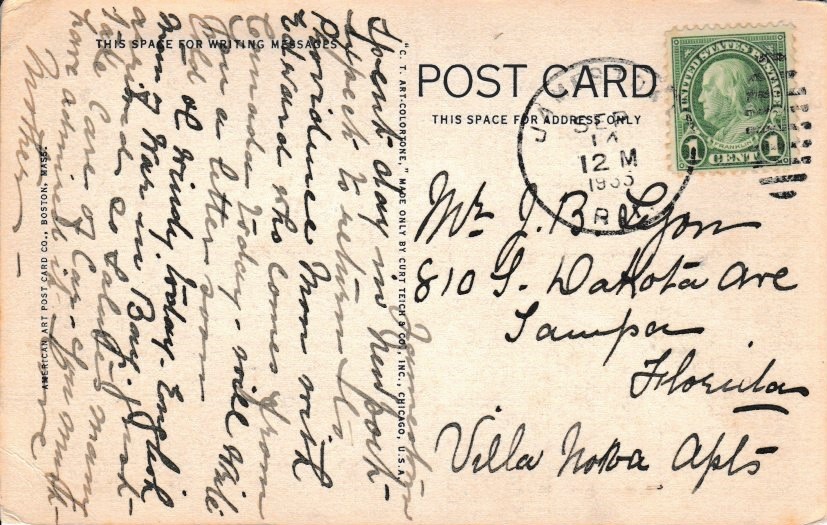 THIS SPACE FOR WRITING MESSAGES
Jamestown
Spent day in Newport -
Expect to return to
Providence Mon with
Edward who comes from
Canada today - will write
you a letter soon
Cold & windy today - English
Man of War in Bay, just
arrived, so salutes many
Take care of Car - you must
have admired it
Mother -
AMERICAN ART POST CARD CO., BOSTON, MASS.
"C. T. ART-COLORTONE," MADE ONLY BY CURT TEICH & CO., INC., CHICAGO, U.S.A.
POST CARD
THIS SPACE FOR ADDRESS ONLY
SEP
14
12 M
1933
R.I.
UNITED STATES POSTAGE
FRANKLIN
1 CENT 1
Mr J. B. Lyon
810 S. Dakota Ave
Tampa
Florida
Villa Nova Apts